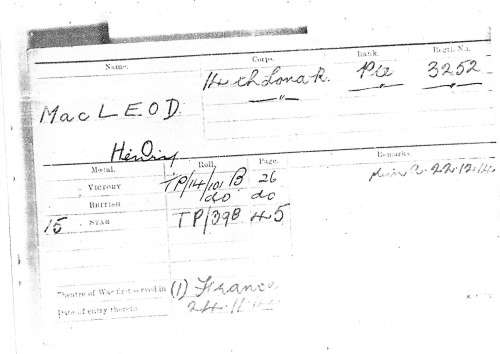 Name. Corps. Rank. Regtl. No.
MacLEOD. H. Pte 3252
" " "
Henry
Medal. Roll. Page. Remarks
Victory TP/14/101 B 26
British do do
15 Star TP/39B 45
Theatre of War first served in (1) France
Date of entry therein